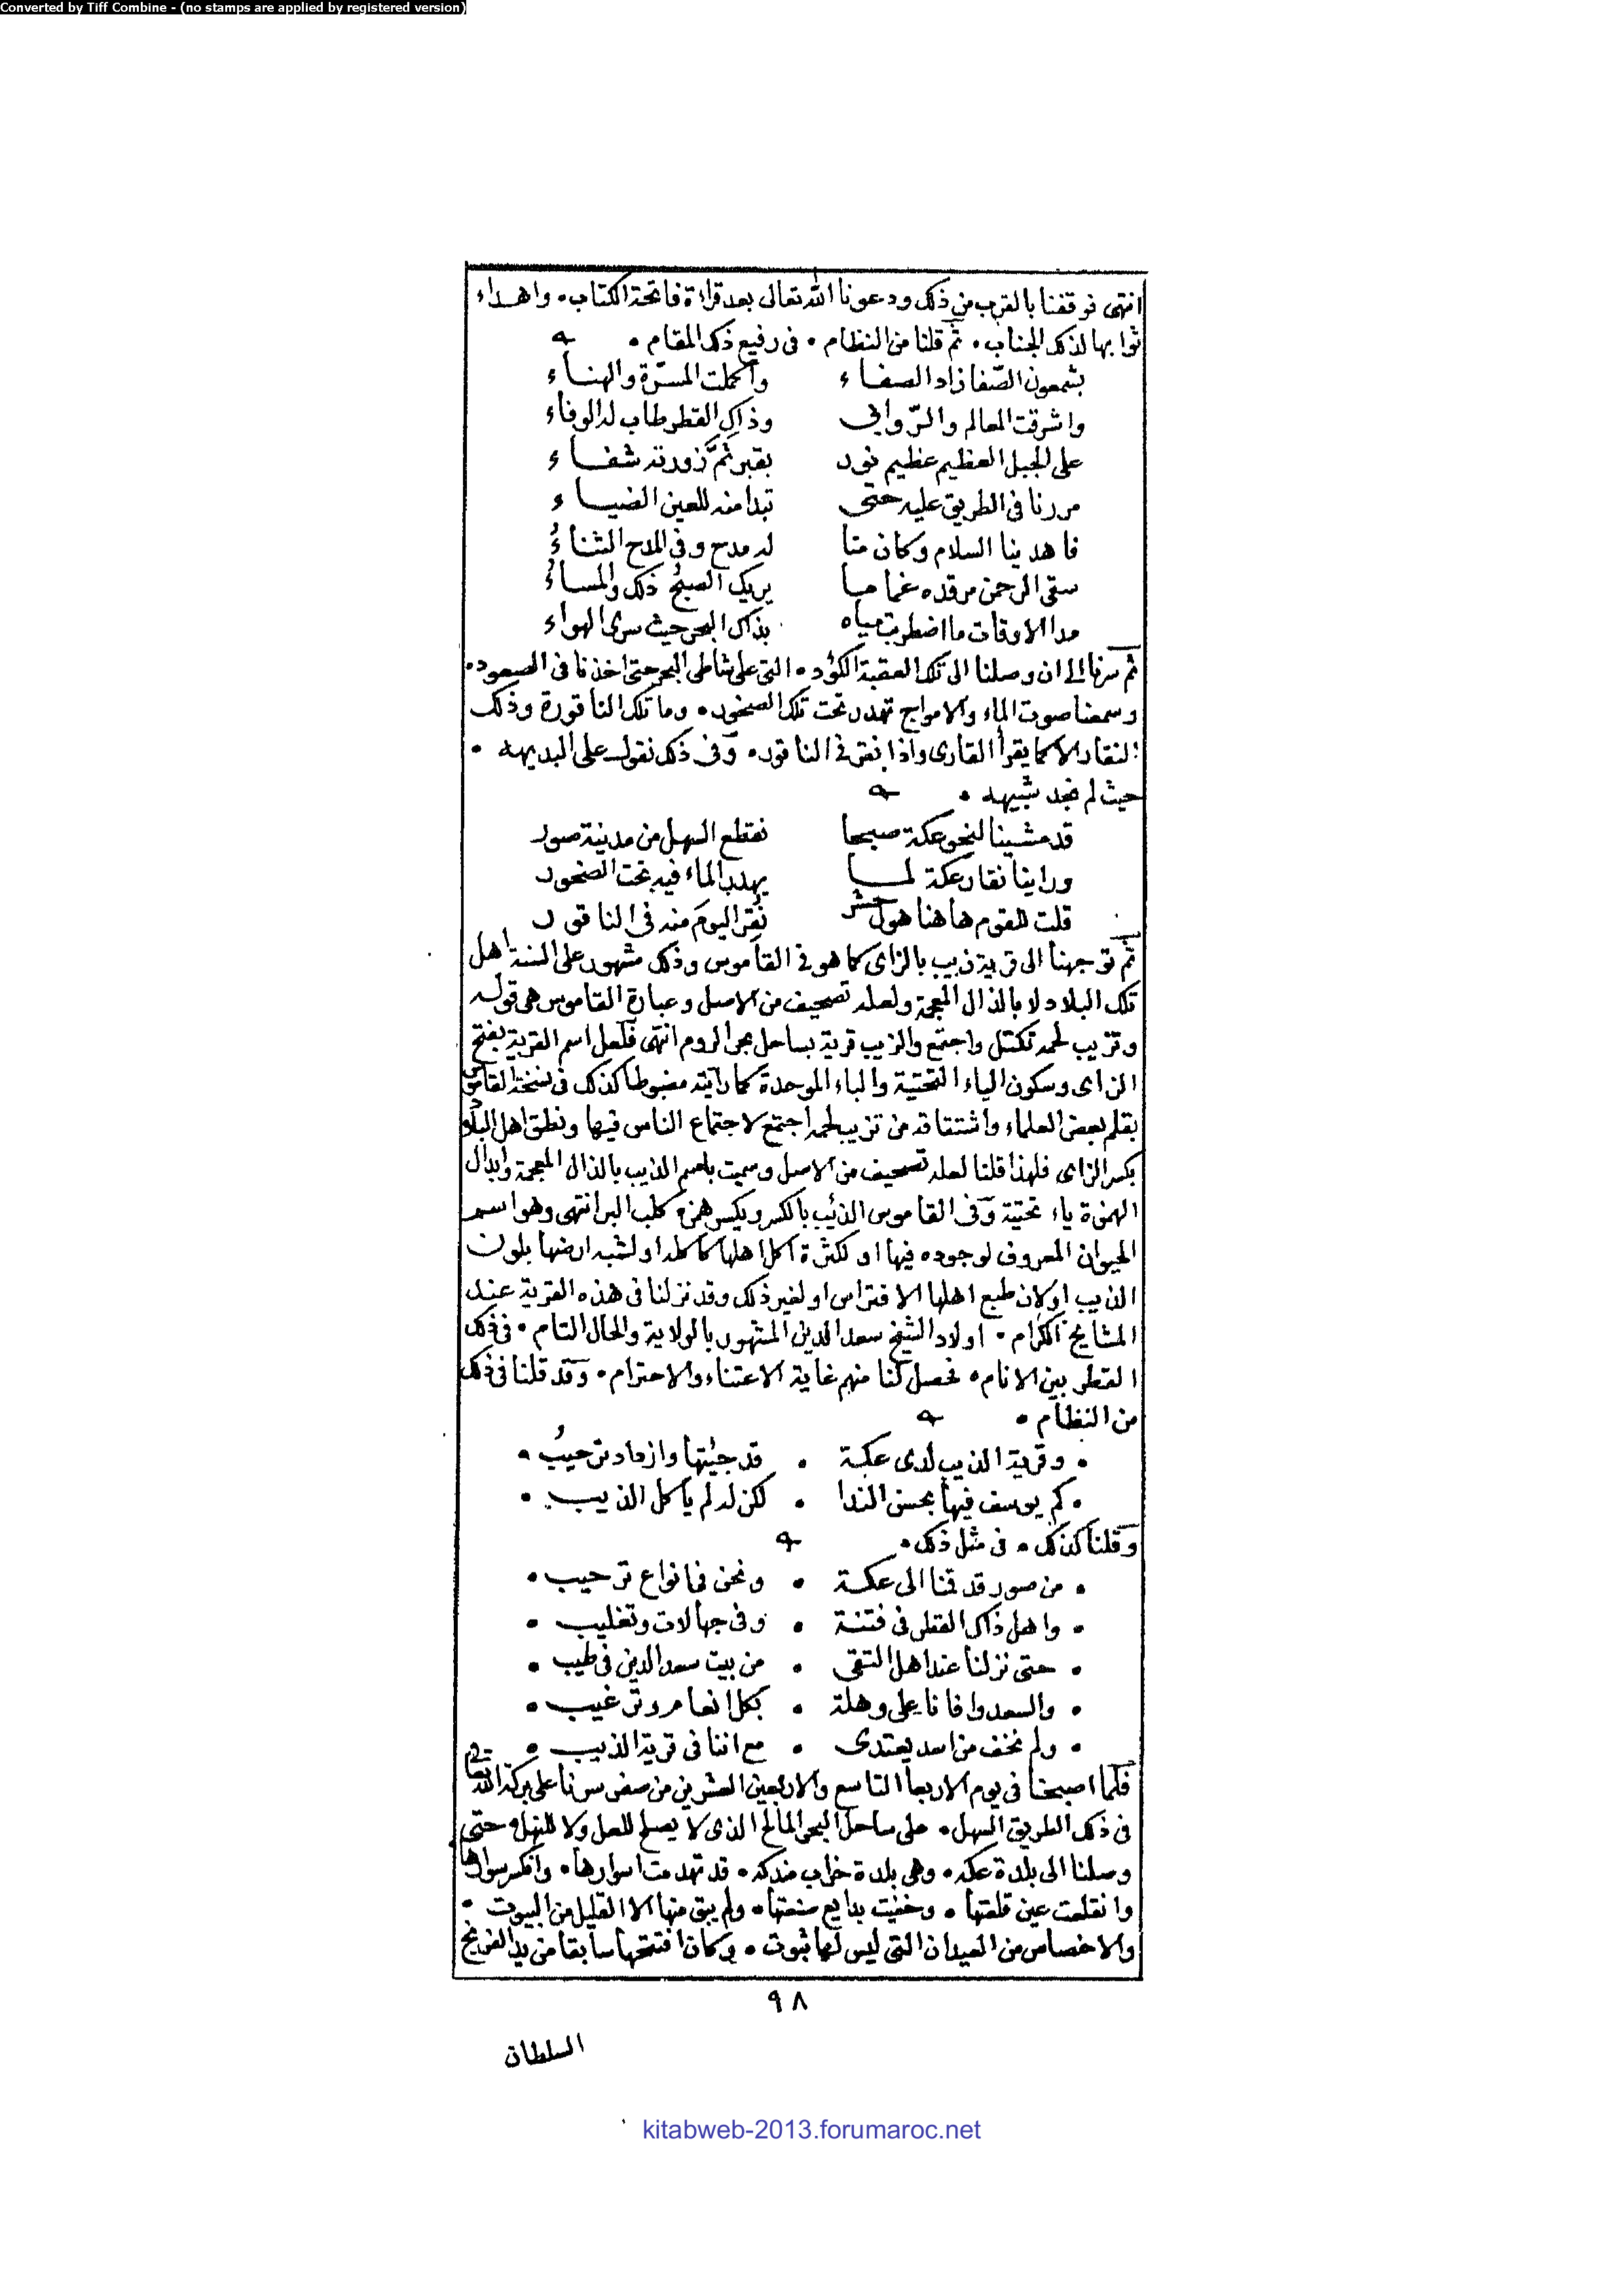 Converted by Tiff Combine - (no stamps are applied by registered version)
انتهى فوقفنا بالقرب من ذلك ودعونا الله تعالى بعد قراءة فاتحة الكتاب • واهداء
ثوابها لذلك الجناب • ثم قلنا من النظام • فى رفيع ذلك المقام •
بشمعون الصّفا زاد الصفاء واكملت المسرّة والهناء
واشرقت المعالم والرّوابى وذاك القطر طاب له الوفاء
على الجبل العظيم عظيم نور بقبر ثمّ زورته شفاء
مررنا فى الطريق عليه حتى تبدا منه للعين الضياء
فاهدينا السلام وكان منا له مدح وفى المدح الثناءُ
سقى الرحمن مرقده غماما يريك الصبحُ ذلك والمساءُ
مدا الاوقات ما اضطربت مياه بذاك البحر حيث سرى الهواء
ثم سرنا الى ان وصلنا الى تلك العقبة الكؤد • التى على شاطى البحر حتى اخذنا فى الصعود •
وسمعنا صوت الماء والامواج تهدر تحت تلك الصخور • وما تلك الناقورة وذلك
النقار الا كما يقرأ القارى واذا نقر فى الناقور • وفى ذلك نقول على البديهه •
حيث لم نجد شبيهه •
قد مشينا لنحو عكة صبحا نقتطع السهل من مدينة صور
وراينا نقار عكة لما يهدر الماء فيه تحت الصخور
قلت للقوم هاهنا هول حشر نُقِر اليومَ منه فى الناقور
ثم توجهنا الى قرية زيب بالزاى كما هو فى القاموس وذلك مشهور على السنة اهل
تلك البلاد لا بالذال المعجمة ولعله تصحيف من الاصل وعبارة القاموس هى قوله
وتزيب لحمه تكتل واجتمع والزيب قرية بساحل بحر الروم انتهى فلعل اسم القرية بفتح
الزاى وسكون الياء التحتية والباء الموحدة كما رايته مضبوطا كذلك فى نسخة القاموس
بقلم بعض العلماء واشتقاقه من تزيب لحمه اجتمع لاجتماع الناس فيها ونطق اهل البلاد
بكسر الزاى فلهذا قلنا لعله تصحيف من الاصل وسميت باسم الذيب بالذال المعجمة وابدال
الهمزة ياء تحتية وفى القاموس الذئب بالكسر ويكسر همزه كلب البر انتهى وهو اسم
الحيوان المعروف لوجوده فيها او لكثرة اكل اهلها كاكله او لشبه ارضها بلون
الذيب او لان طبع اهلها الافتراس او لغير ذلك وقد نزلنا فى هذه القرية عند
المشايخ الكرام • اولاد الشيخ سعد الدين المشهور بالولاية والحال التام • فى ذلك
القطر بين الانام • فحصل لنا منهم غاية الاعتناء والاحترام • وقد قلنا فى ذلك
من النظام •
• وقرية الذيب لدى عكة • قد جيتها وازداد ترحيبُ •
• كم يوسف فيها بحسن الندا • لكن له لم ياكل الذيب •
وقلنا كذلك • فى مثل ذلك •
• من صور قد قمنا الى عكة • ونحن فى انواع ترحيب •
• واهل ذاك القطر فى فتنة • وفى جهالات وتغليب •
• حتى نزلنا عند اهل التقى • من بيت سعد الدين فى طيب •
• والسعد وافانا على وهلة • بكل انعام وترغيب •
• ولم نخف من اسد يعتدى • مع اننا فى قرية الذيب •
فلما اصبحنا فى يوم الاربعا التاسع والاربعين العشرين من صفر سرنا على بركة الله تعالى
فى ذلك الطريق السهل • على ساحل البحر المالح الذى لا يصلح للعل ولا للنهل • حتى
وصلنا الى بلدة عكه • وهى بلدة خراب مندكه • قد تهدمت اسوارها • وانكسر سوارها
وانقلعت عين قلعتها • وخفيت بدايع صنعتها • ولم يبق منها الا القليل من البيوت •
والاخصاص من العيدان التى ليس لها ثبوت • وكان افتتحها سابقا من يد الفرنج
٩٨
السلطان
kitabweb-2013.forumaroc.net